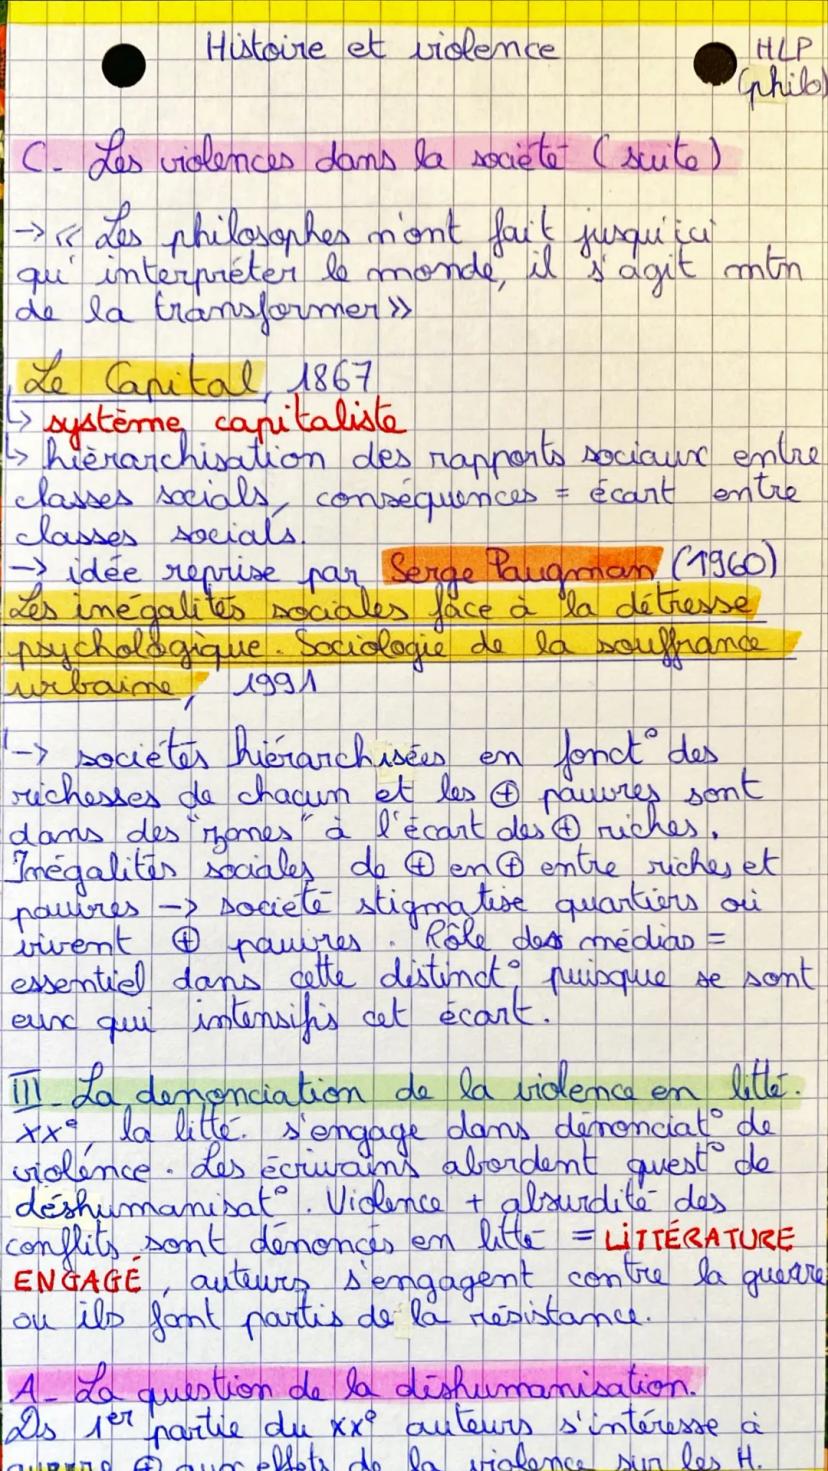 Histoire et violence
HLP
(philo)
C- Les violences dans la société (suite)
-> « Les philosophes n'ont fait jusqu'ici
qu'interpréter le monde, il s'agit mtn
de la transformer »
Le Capital, 1867
↳ système capitaliste
↳ hiérarchisation des rapports sociaux entre
classes socials, conséquences = écart entre
classes socials.
-> idée reprise par Serge Paugman (1960)
Les inégalités sociales face à la détresse
psychologique. Sociologie de la souffrance
urbaine, 1991
-> sociétés hiérarchisées en fonct° des
richesses de chacun et les ⊕ pauvres sont
dans des "zones" à l'écart des ⊕ riches.
Inégalités sociales de ⊕ en ⊕ entre riches et
pauvres -> société stigmatise quartiers où
vivent ⊕ pauvres. Rôle des médias =
essentiel dans cette distinct°, puisque se sont
eux qui intensifis cet écart.
III- La dénonciation de la violence en litté.
XXe, la litté. s'engage dans dénonciat° de
violence. Les écrivains abordent quest° de
déshumanisat°. Violence + absurdité des
conflits sont dénoncés en litté = LITTÉRATURE
ENGAGÉ, auteurs s'engagent contre la guerre
ou ils font partis de la résistance.
A- La question de la déshumanisation.
Ds 1er partie du XXe auteurs s'intéresse à
guerre ⊕ aux effets de la violence sur les H.